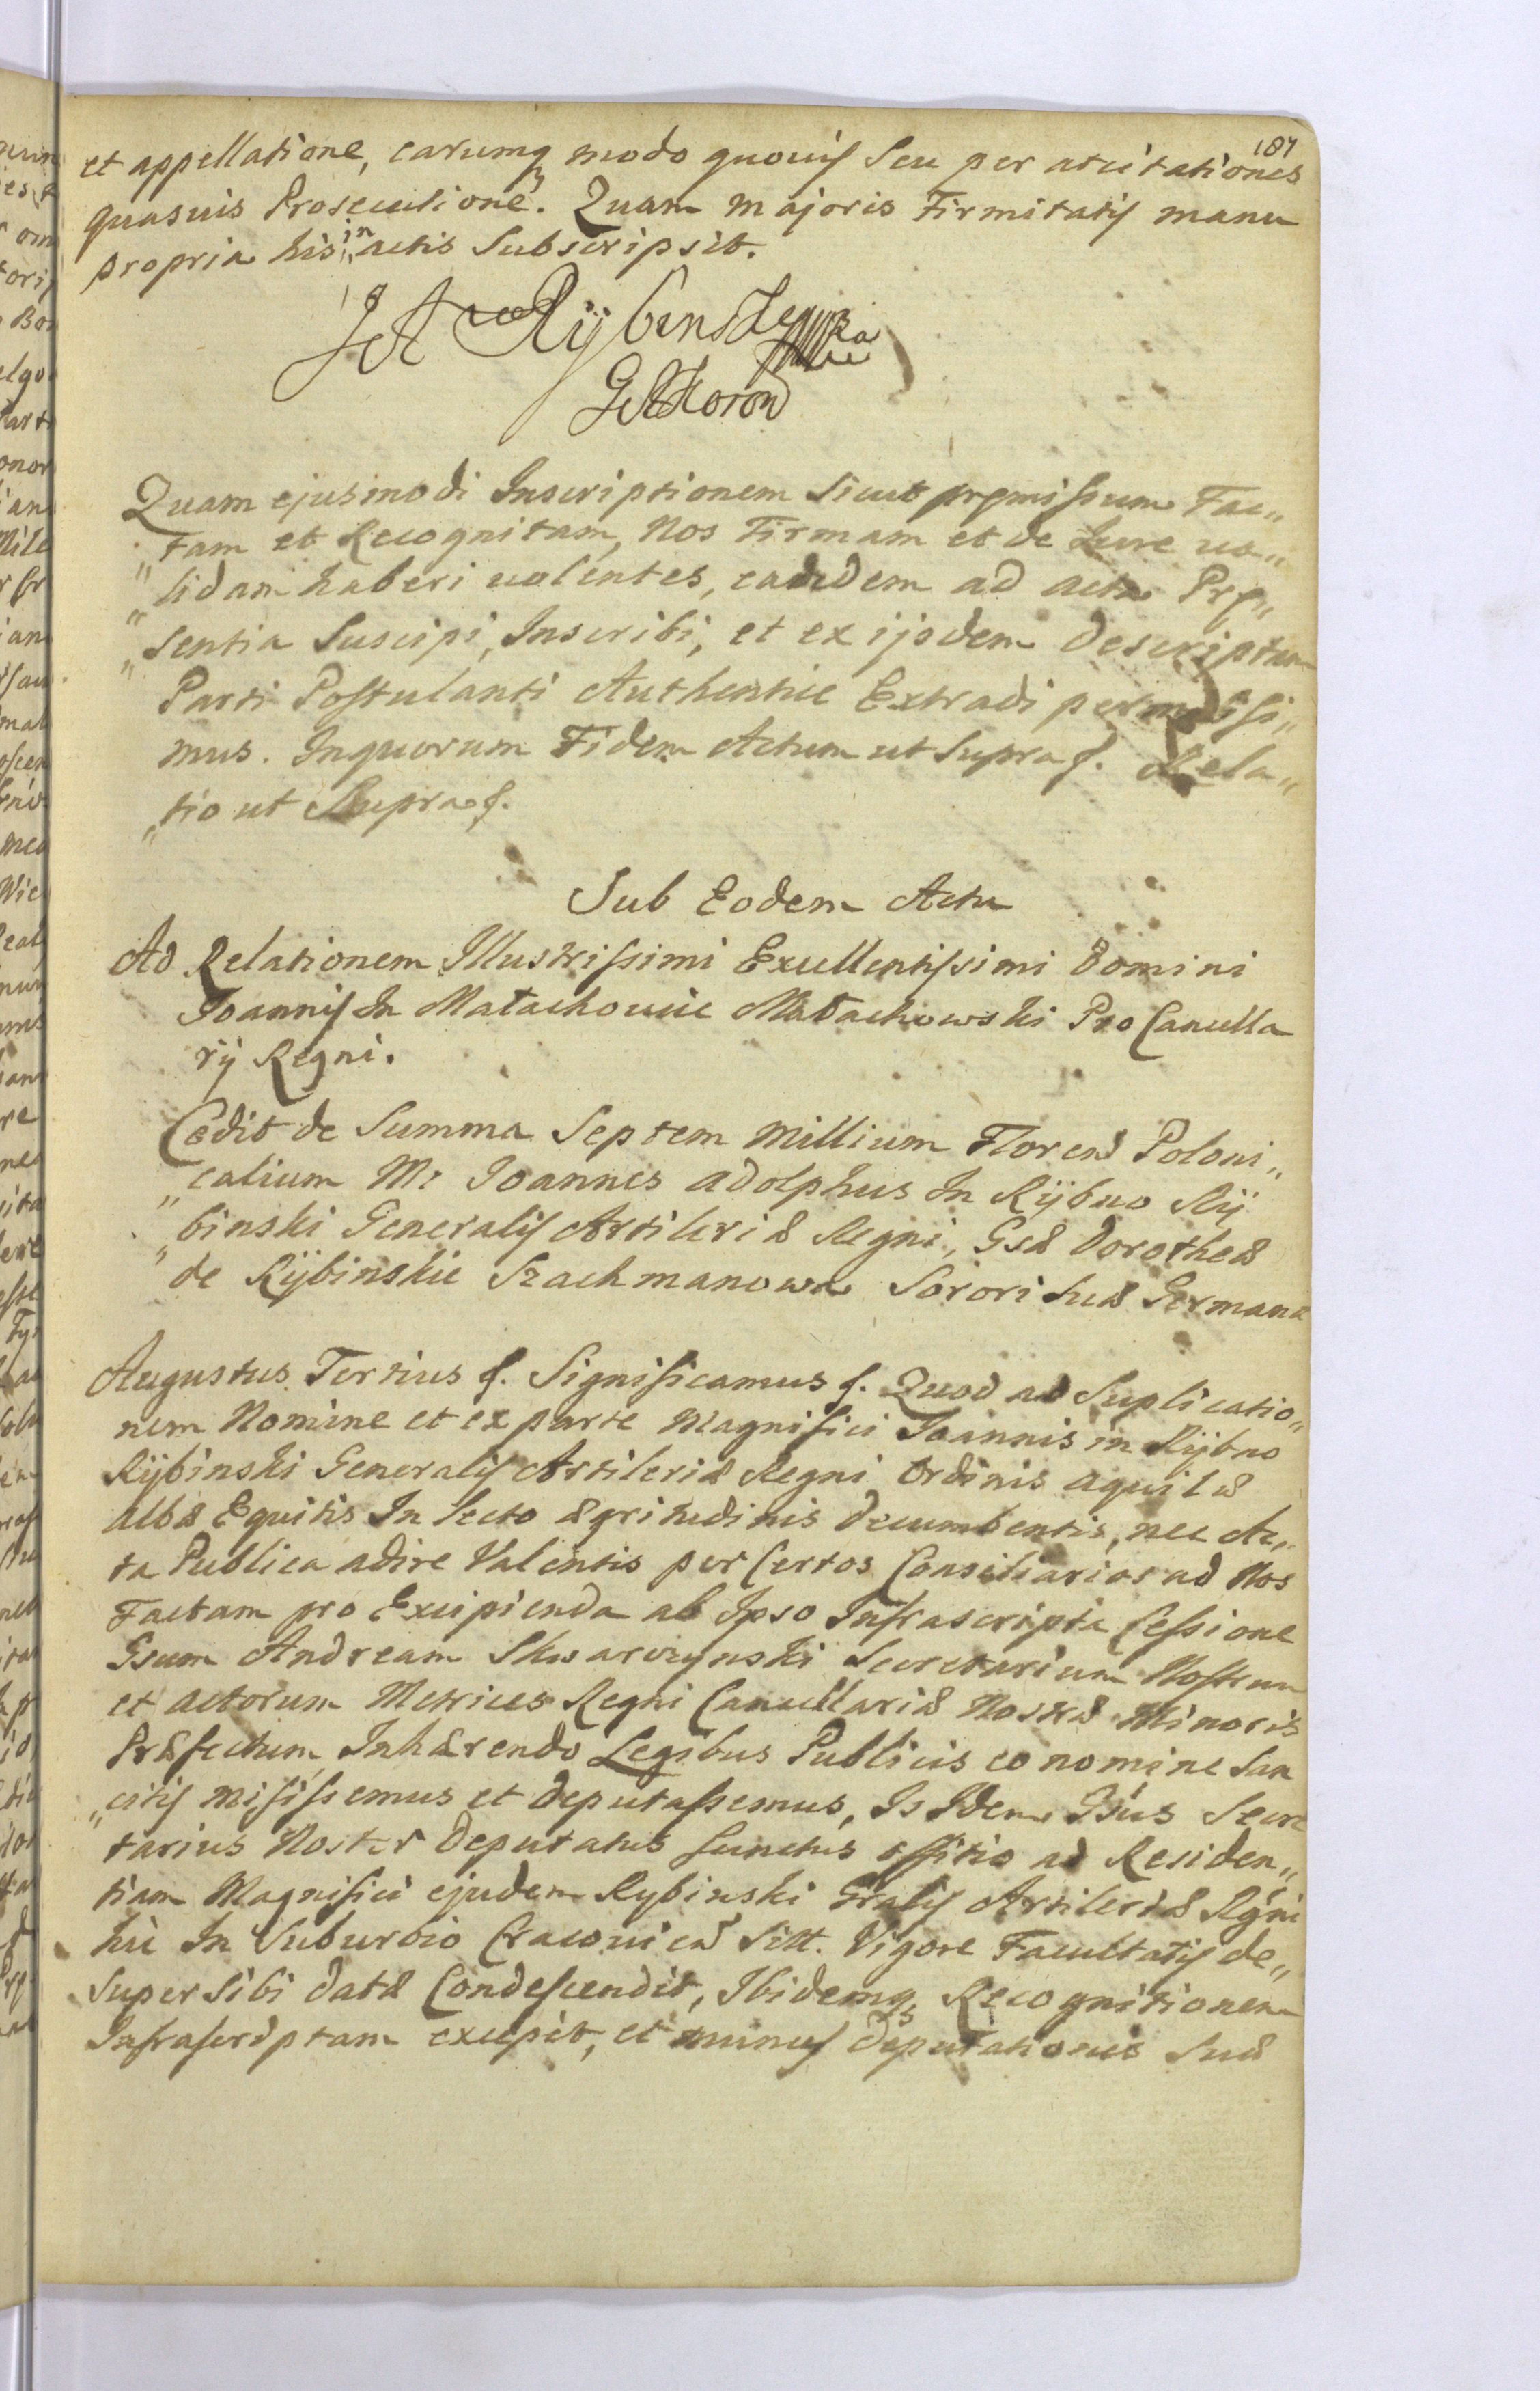 187
et appellatione, earumq modo quovis Seu per arcitationes
quasuis Prosecutione. Quam majoris Firmitatis manu
propria his in actis Subscripsit.
JA Rÿbinski
GAKoron
Quam ejusmodi Inscriptionem Sicut prȩmissum Fac„
„tam et Recognitam, Nos Firmam et de Iure va„
„lidam haberi volentes, eandem ad acta Prȩ„
„sentia Suscipi, Inscribi, et ex ijsdem descriptum
Parti Postulanti Authentice Extradi permissi„
mus. Inquorum Fidem Actum ut Supra f. Rela„
„tio ut Supra f.
Sub Eodem Actu
Ad Relationem Illustrissimi Excellentissimi Domini
Joannis In Małachowice Małachowski ProCancella
rij Regni.
Cedit de Summa Septem Millium Floren Poloni„
„calium Mr Joannes Adolphus In Rÿbno Rÿ
„binski Generalis Artileriæ Regni, Gsæ Dorotheæ
de Rÿbinskie Szachmanowa Sorori Suæ Germana
Augustus Tertius f. Significamus f. Quod ad Suplicatio„
nem Nomine et ex parte Magnifici Joannis in Rÿbno
Rÿbinski Generalis Artileriæ Regni Ordinis Aquilæ
Albæ Equitis In Lecto ægritudinis decumbentis, nec Ac„
ta Publica adire Valentis per Certos Consiliarios ad Nos
Factam pro Excipienda ab Ipso Infrascripta Cessione
Gsum Andream Skwarczynski Secretarium Nostrum
et Actorum Metrices Regni Cancellariæ Nostræ Minoris
Præfectum, Inhærendo Legibus Publicis eo nomine San
„citis misissemus et deputassemus, Is Idem Gsus Secre
tarius Noster Deputatus functus offitio ad Residen„
tiam Magnifici ejusdem Rybinski Gralis Artileriæ Rgni
hic In Suburbio Cracovien Sitt. Vigore Facultatis de„
super Sibi datæ Condescendit, Ibidemq Recognitionem
Infrascriptam excepit, et munus deputationis Suæ